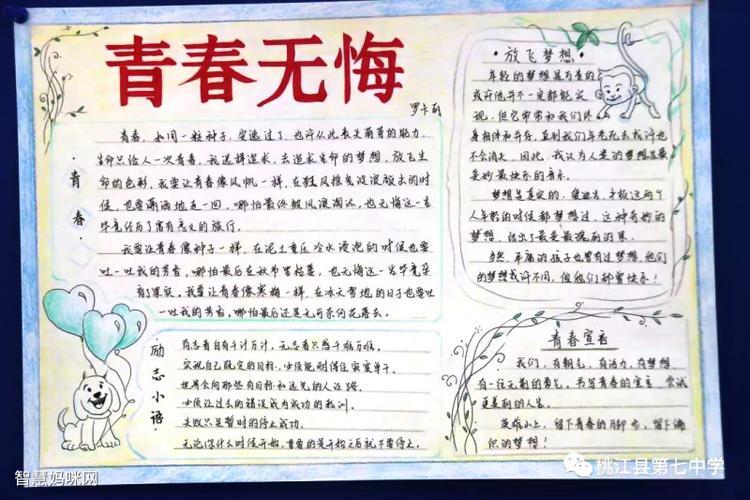 青春无悔
罗卡丽
·青春·
青春,如同一粒种子,错过了,也许从此丧失萌芽的能力。
生命只给人一次青春,我选择追求,去追求生命的梦想,放飞生
命的色彩,我要让青春像风帆一样,在狂风
的时
候,也要潇洒地走一回,哪怕最终被风浪淘汰,也无悔这一生
毕竟经历了富有意义的旅行。
我要让青春像种子一样,在泥土重压冷水浸泡的时候也要
吐一吐我的芳香,哪怕最后在秋节里枯萎,也无悔这一生毕竟朵
有了果实。我要让青春像寒梅一样,在冰天雪地的日子也要吐
一吐我的芳香,哪怕最后还是无可奈何花落去。
·放飞梦想·
年轻的梦想是可喜的
或许他并不一定都能实
现,但它常常和我们终
身相伴和并存,直到我们年老死去或许也
不会消失,因此,我认为人类的梦想是最
美妙最快乐的音乐。
梦想是真实的,
这两个
人年轻的时候都梦想过,这种奇妙的
梦想,结出了最美最瑰丽的果。
当然,平庸的孩子也曾有过梦想,他们
的梦想或许不同,但他们都曾快乐!
·励志小语·
有志者自有千计万计,无志者只感千难万难。
实现自己既定的目标,必须能耐得住寂寞单干。
世界会向那些有目标和远见的人让路。
必须让过去的错误成为成功的教训。
失败只是暂时的停止成功。
无论你什么时候开始,重要的是开始之后就不要停止。
青春宣言
我们,有朝气,有活力,有梦想,
有一往无前的勇气,书写青春的宣言,尝试
更美丽的人生。
英雄山上,留下青春的脚步,留下满
怀的梦想!
智慧妈咪网
桃江县第七中学